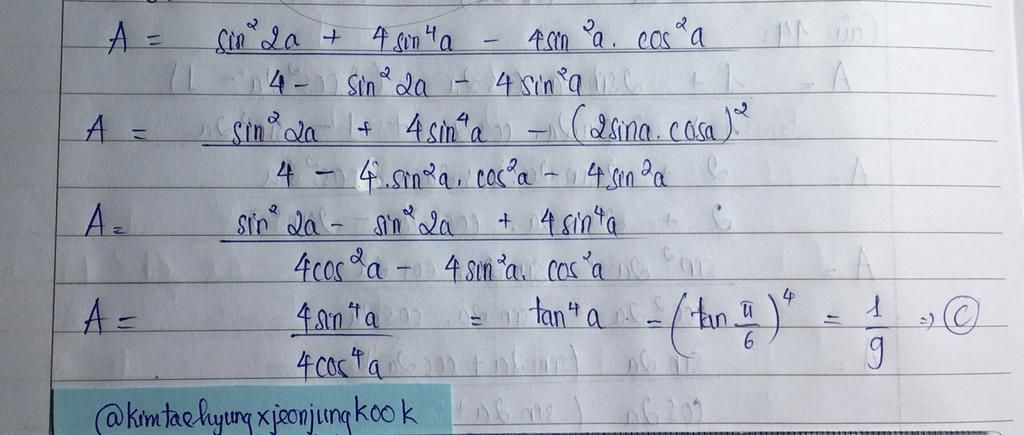 A = (sin²2a + 4sin⁴a - 4sin²a . cos²a) / (4 - sin²2a - 4sin²a)
A = (sin²2a + 4sin⁴a - (2sina.cosa)²) / (4 - 4.sin²a.cos²a - 4sin²a)
A = (sin²2a - sin²2a + 4sin⁴a) / (4cos²a - 4sin²a.cos²a)
A = 4sin⁴a / 4cos⁴a = tan⁴a = (tan π/6)⁴ = 1/9 => Ⓒ
@kimtaehyungxjeonjungkook